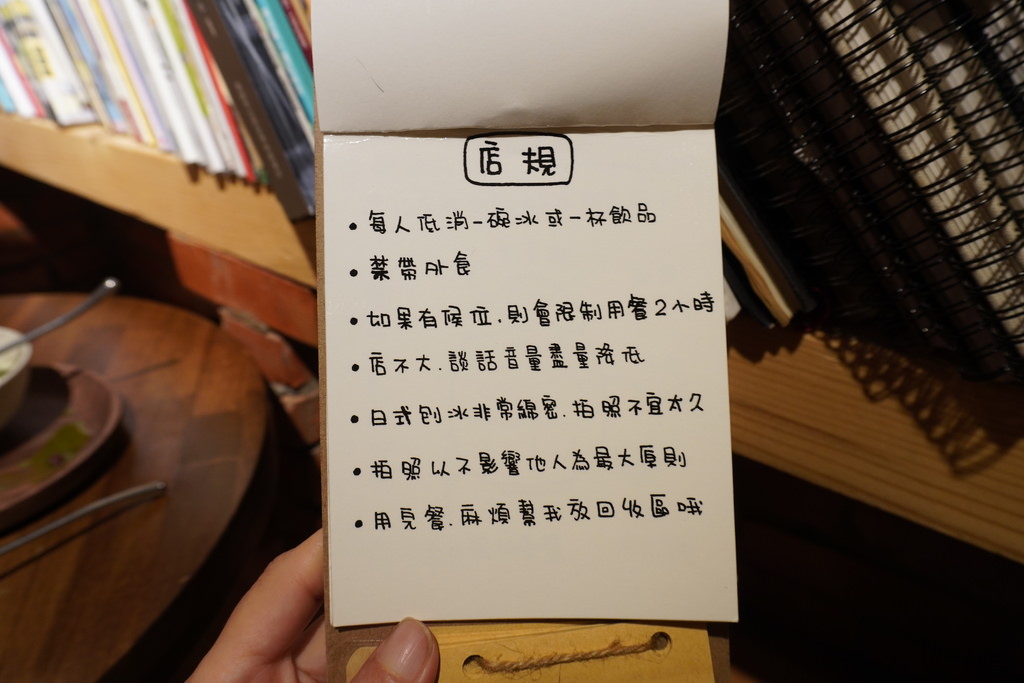 店規
• 每人低消一碗冰或一杯飲品
• 禁帶外食
• 如果有候位.則會限制用餐2小時
• 店不大.談話音量盡量降低
• 日式刨冰非常綿密.拍照不宜太久
• 拍照以不影響他人為最大原則
• 用完餐.麻煩幫我放回收區哦